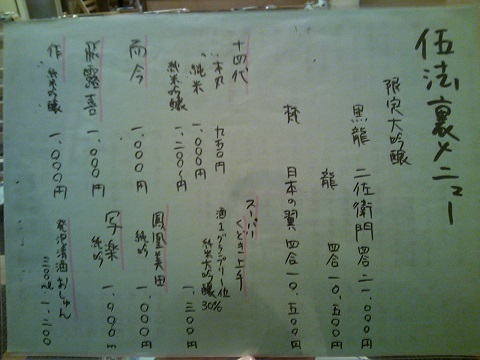 伍法裏メニュー
限定大吟醸
黒龍 二左衛門 四合 二一、〇〇〇円
龍 四合 一〇、五〇〇円
梵 日本の翼 四合 一〇、五〇〇円
十四代
本丸 九五〇円
純米 一、〇〇〇円
純米吟醸 一、二〇〇円
而今 一、〇〇〇円
飛露喜 一、〇〇〇円
作 純米吟醸 一、〇〇〇円
スーパーくどき上手
酒1グランプリ一位
純米大吟醸30%
一、三〇〇円
鳳凰美田
純吟 一、〇〇〇円
写楽
純吟 一、〇〇〇円
発泡清酒
一、二〇〇